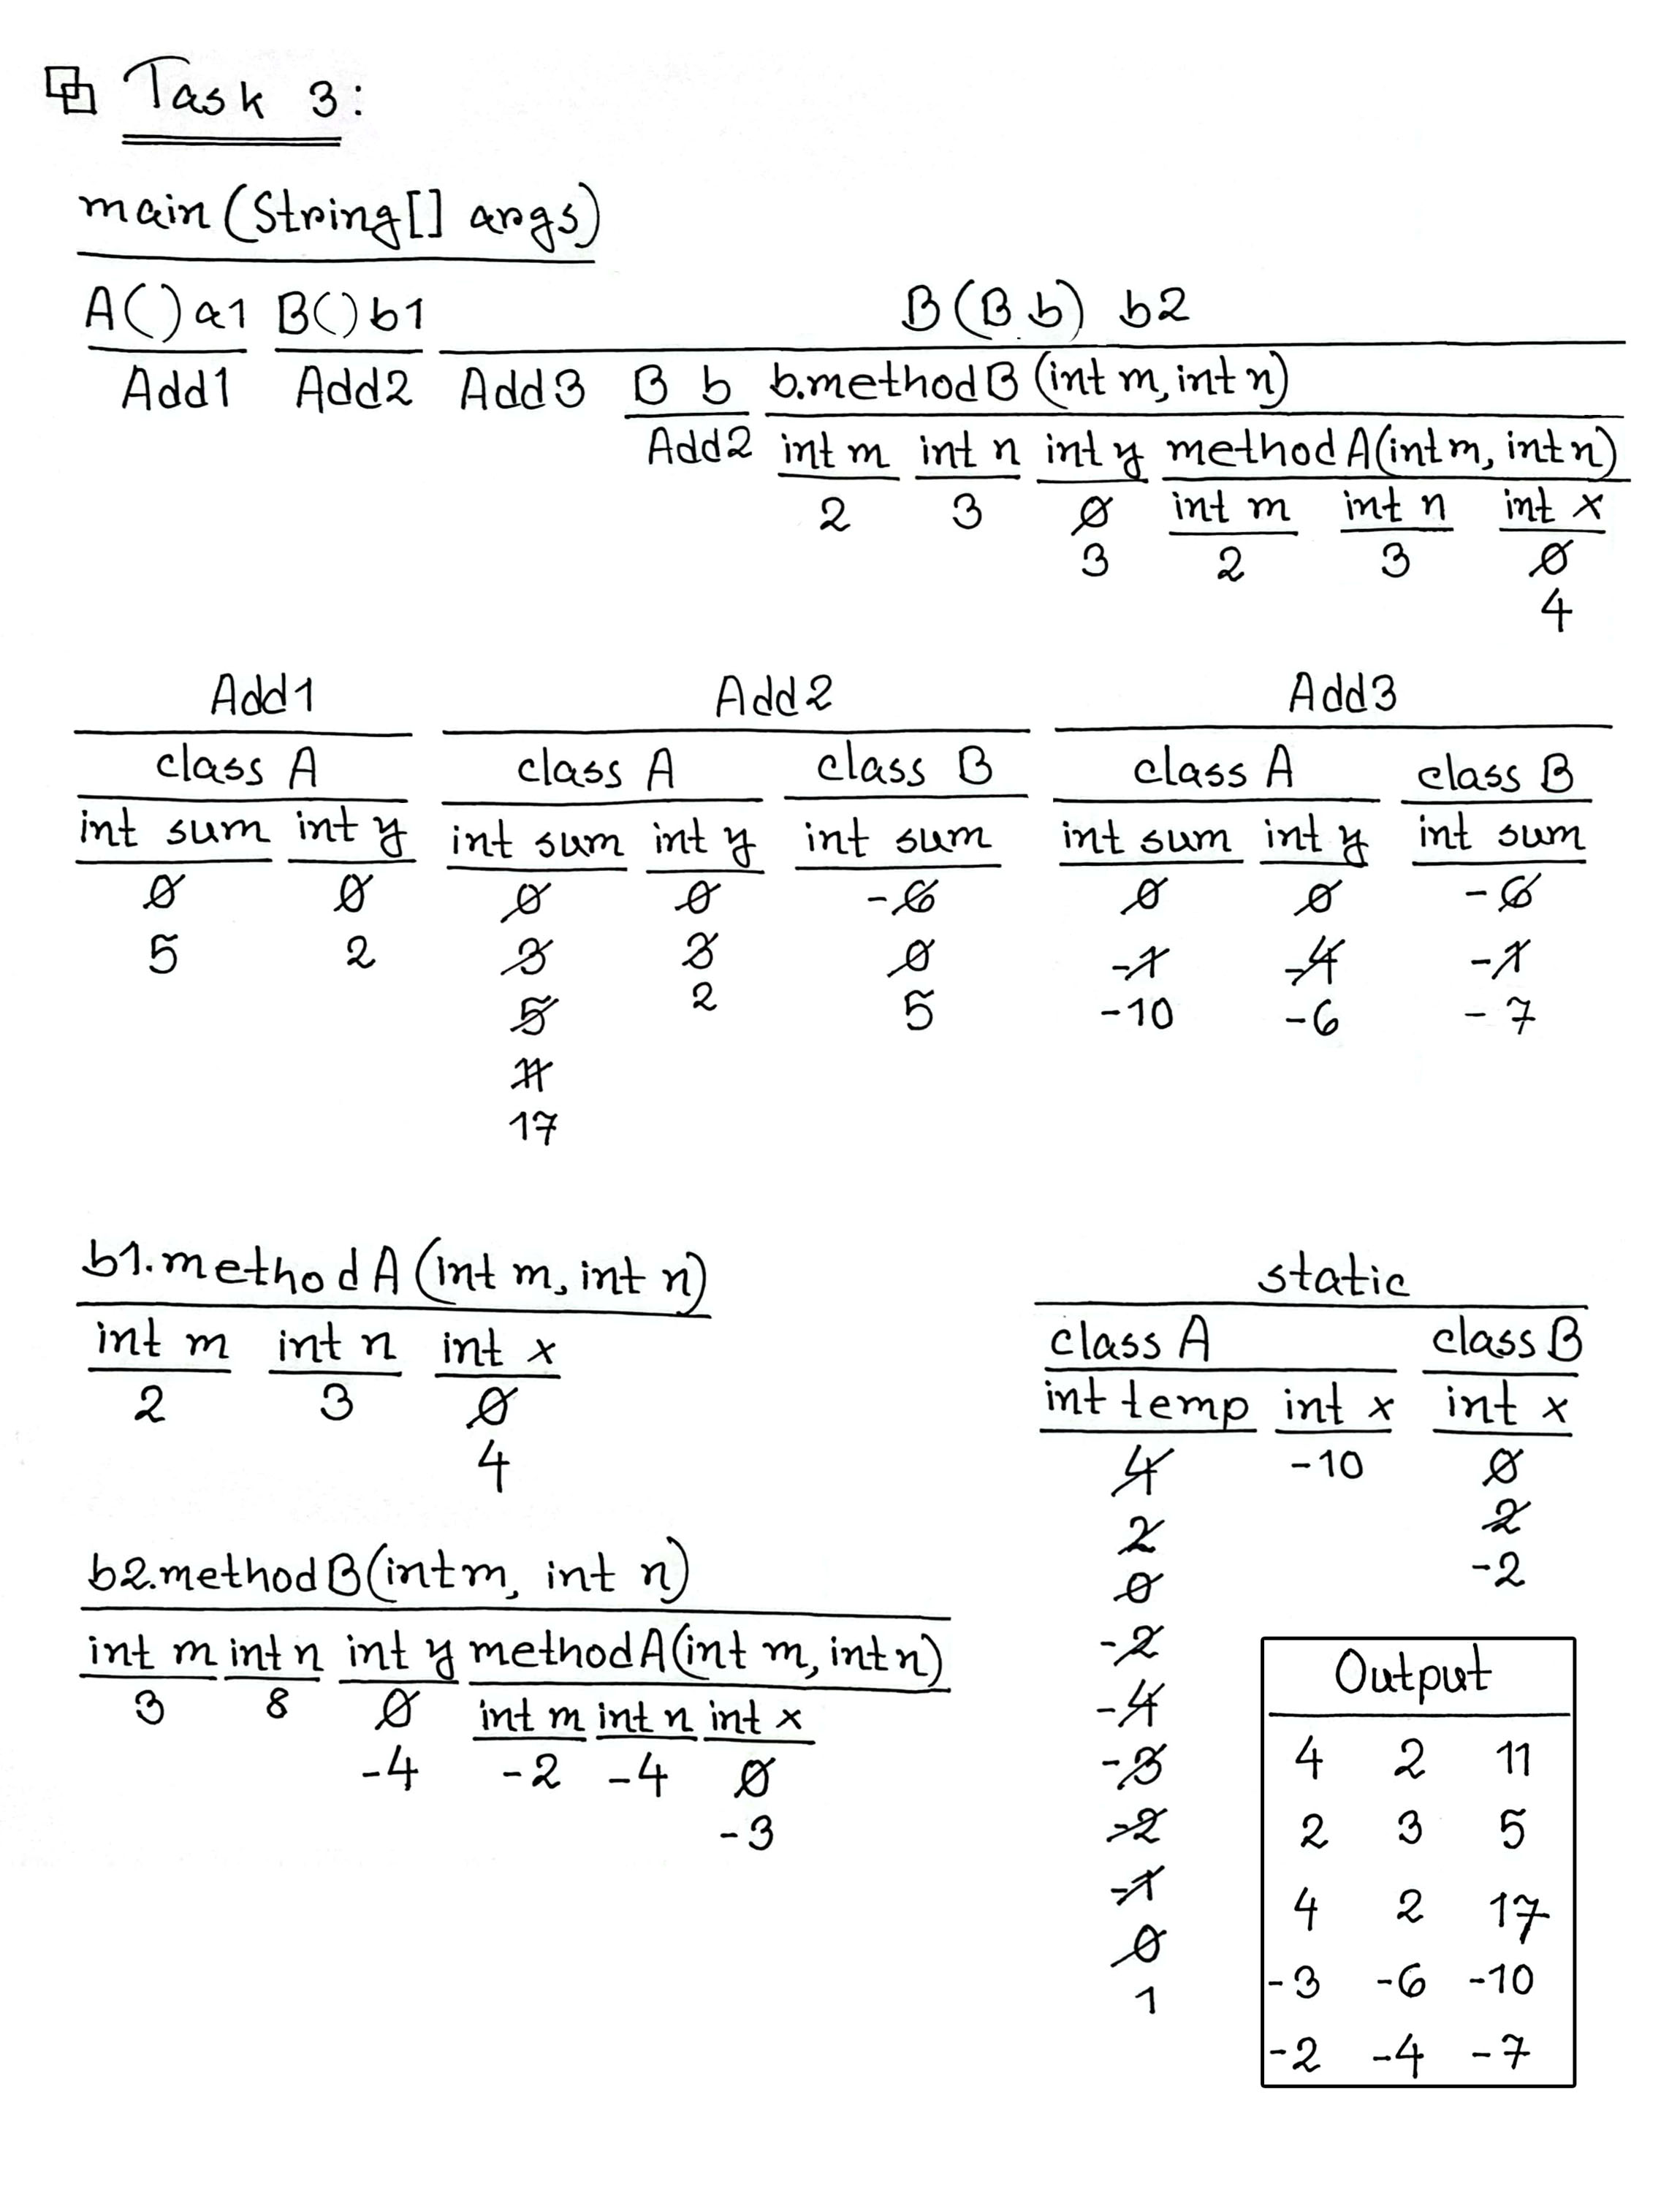 Task 3:
main(String[] args)
A() a1 B() b1 B(B b) b2
Add1 Add2 Add3 B b b.methodB(int m, int n)
Add2 int m int n int y methodA(int m, int n)
2 3 0 int m int n int x
3 2 3 0
4
Add1 Add2 Add3
class A class A class B class A class B
int sum int y int sum int y int sum int sum int y int sum
0 0 0 0 -6 0 0 -6
5 2 3 3 0 -1 -4 -1
5 2 5 -10 -6 -7
11
17
b1.methodA(int m, int n)
int m int n int x
2 3 0
4
b2.methodB(int m, int n)
int m int n int y methodA(int m, int n)
3 8 0 int m int n int x
-4 -2 -4 0
-3
static
class A class B
int temp int x int x
4 -10 0
2 2
0 -2
-2
-4
-3
-2
-1
0
1
Output
4 2 11
2 3 5
4 2 17
-3 -6 -10
-2 -4 -7